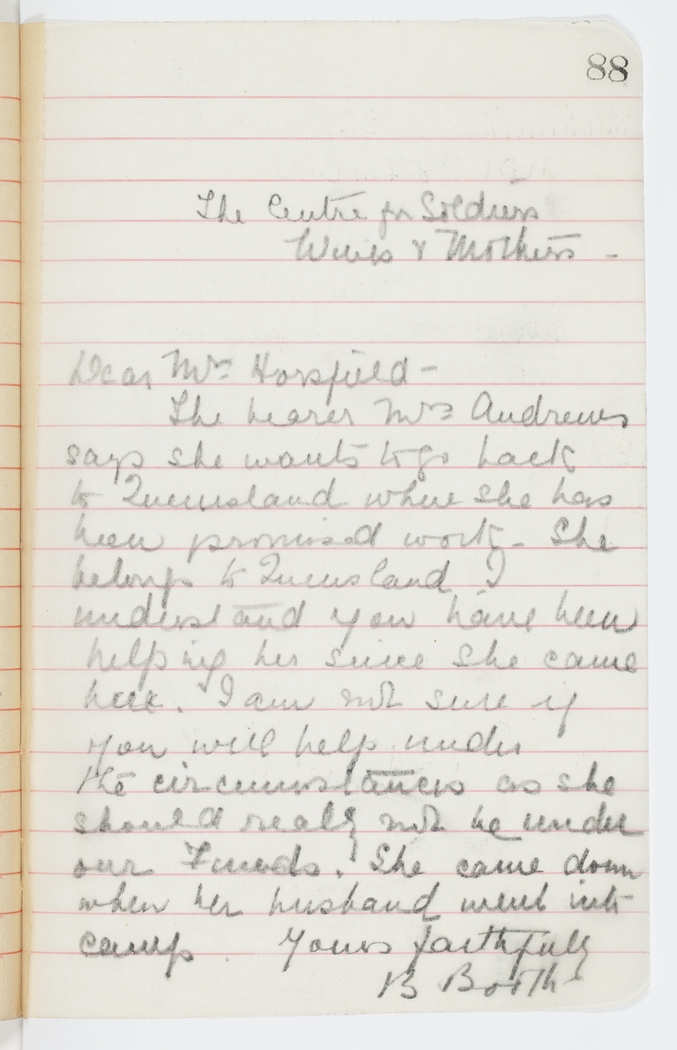 88
The Centre for Soldiers
Wives & Mothers -
Dear Mrs Horsfield -
The bearer Mrs Andrews
says she wants to go back
to Queensland where she has
been promised work - She
belongs to Queensland I
understand you have been
helping her since she came
here. I am not sure if
you will help under
the circumstances as she
should really not be under
our Funds. She came down
when her husband went into
camp. Yours faithfully
B Booth